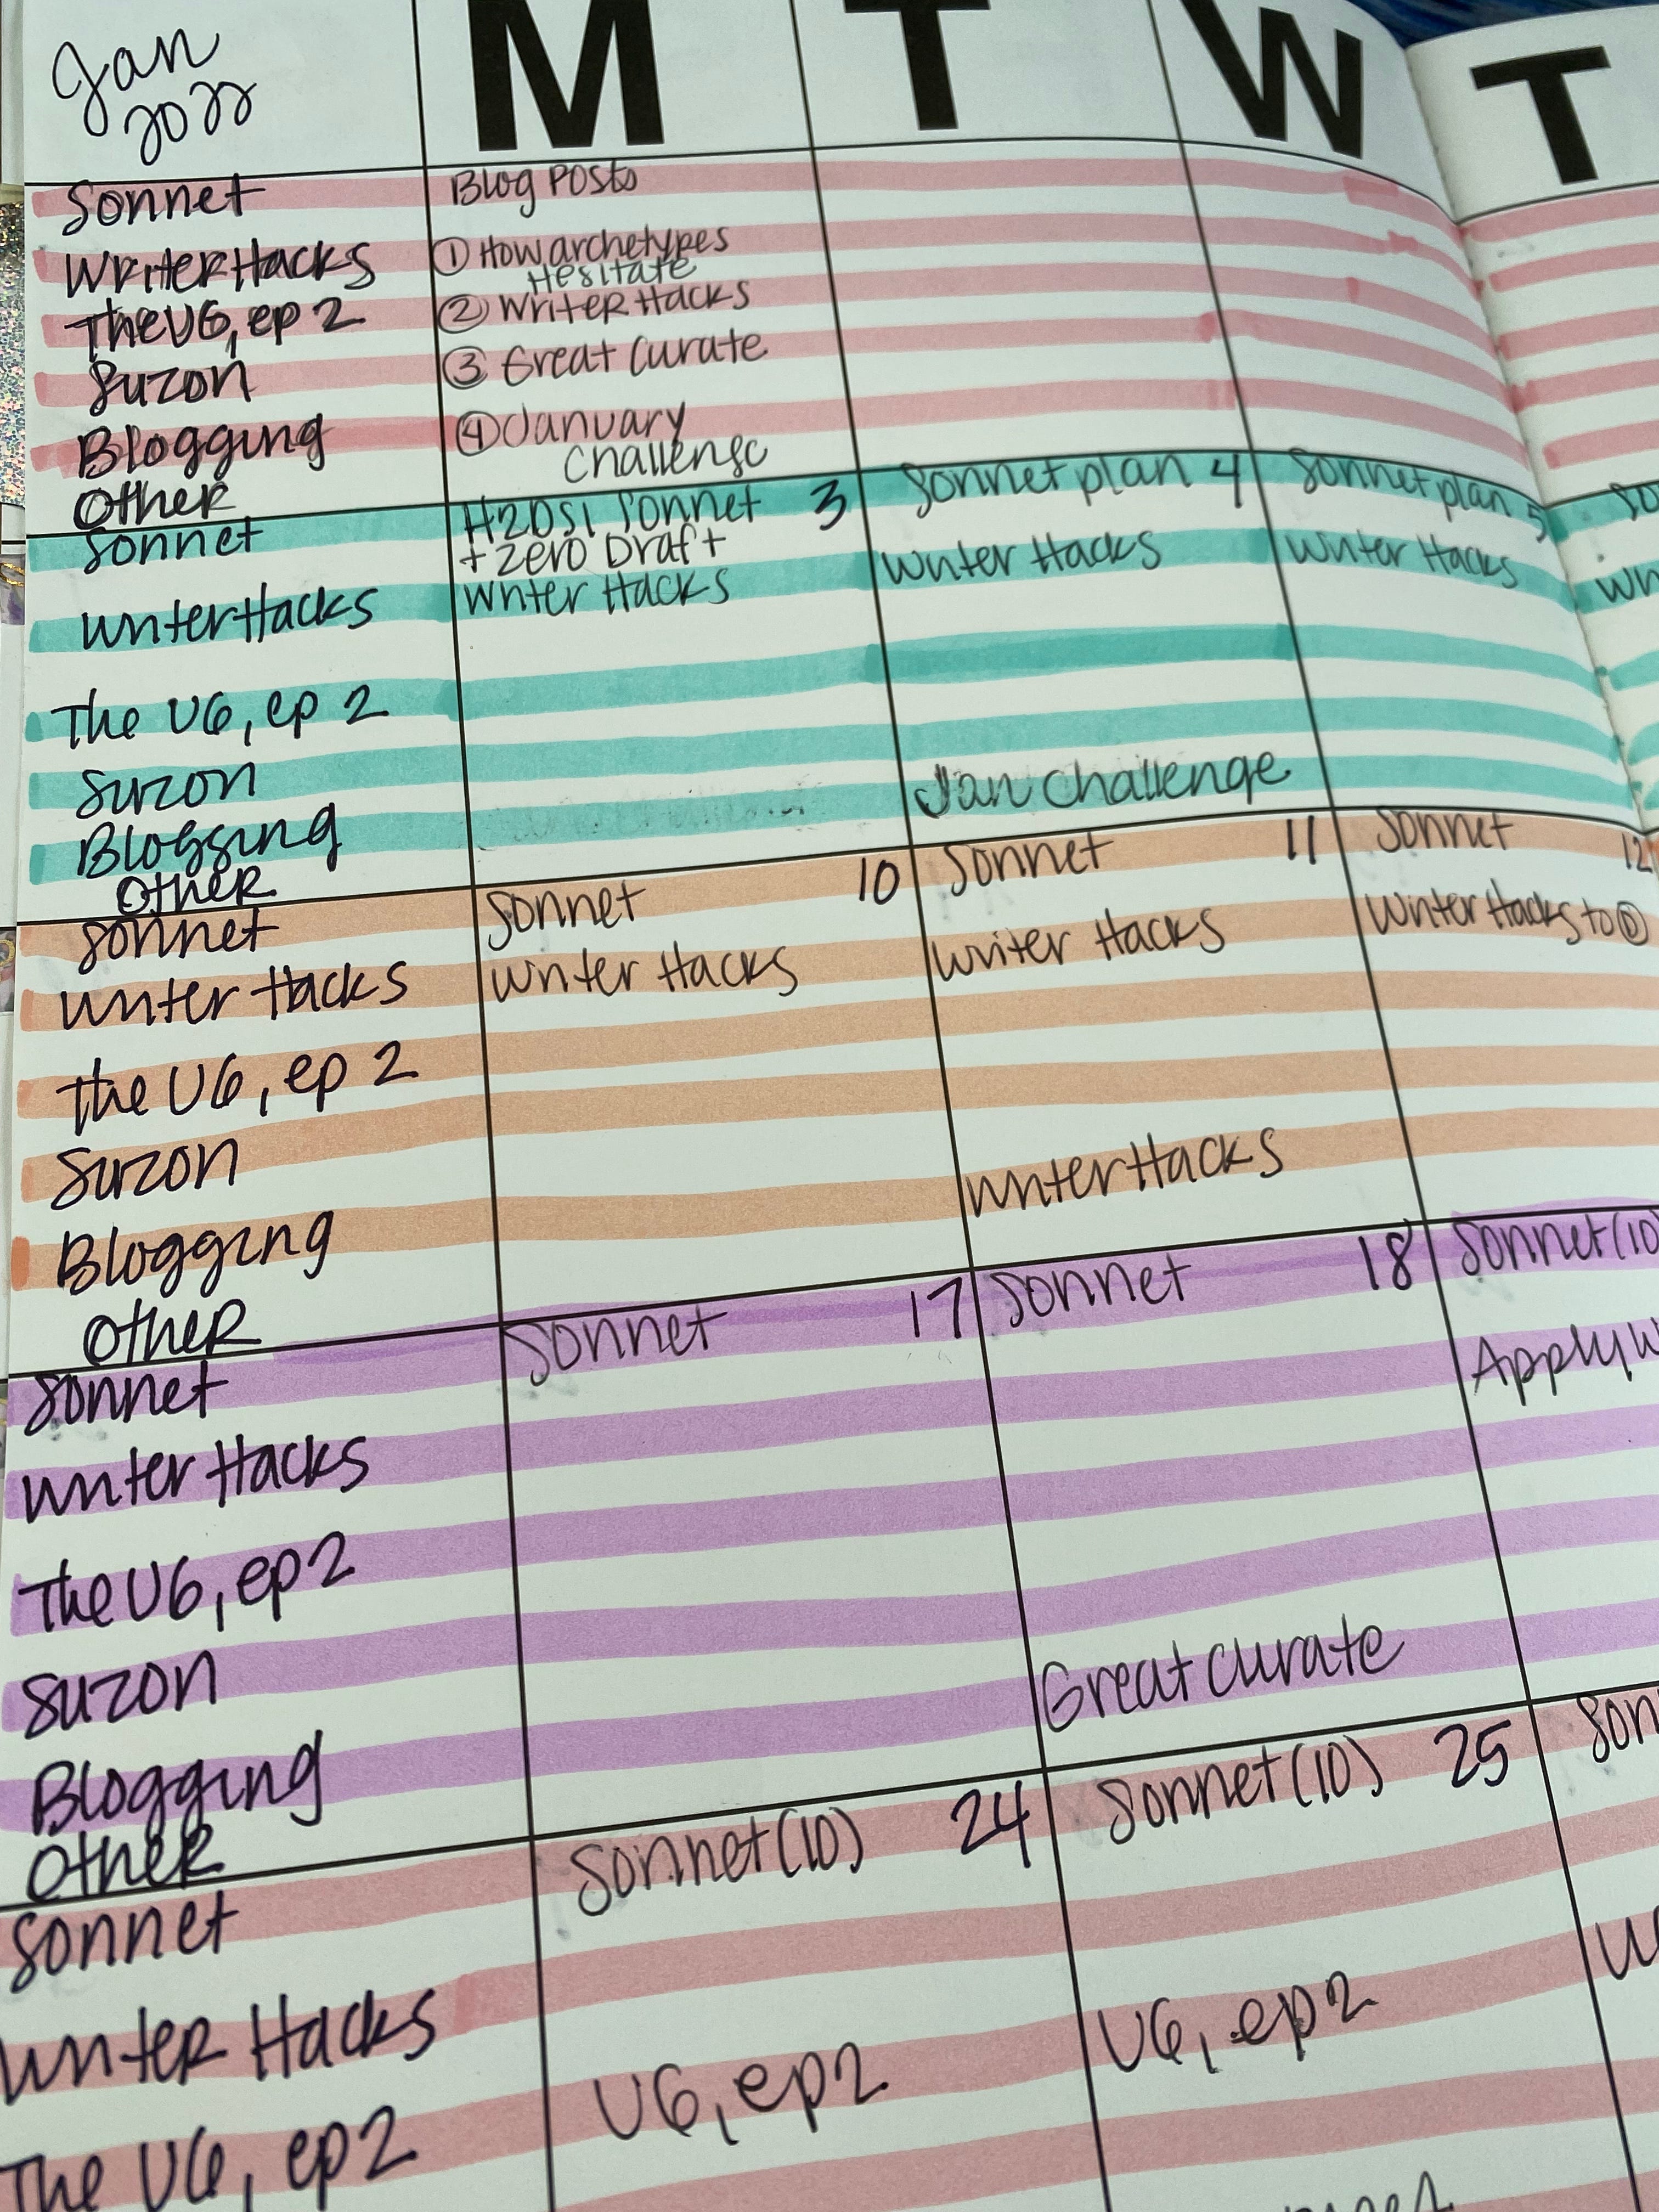 Jan
2022
M T W T
Sonnet
WriterHacks
The U6, ep 2
Suzon
Blogging
Other
Blog Posts
① How archetypes
Hesitate
② Writer Hacks
③ Great Curate
④ January
Challenge
Sonnet
WriterHacks
The U6, ep 2
Suzon
Blogging
Other
H2DSI Sonnet 3
+ Zero Draft
Writer Hacks
Sonnet plan 4
Writer Hacks
Jan Challenge
Sonnet plan 5
Writer Hacks
Sonnet
Writer Hacks
The U6, ep 2
Suzon
Blogging
Other
Sonnet 10
Writer Hacks
Sonnet 11
Writer Hacks
Writer Hacks
Sonnet 12
Writer Hacks to
Sonnet
Writer Hacks
The U6, ep 2
Suzon
Blogging
Other
Sonnet 17
Sonnet 18
Great Curate
Sonnet (10)
Apply W
Sonnet
Writer Hacks
The U6, ep 2
Sonnet (10) 24
U6, ep 2
Sonnet (10) 25
U6, ep 2
Son